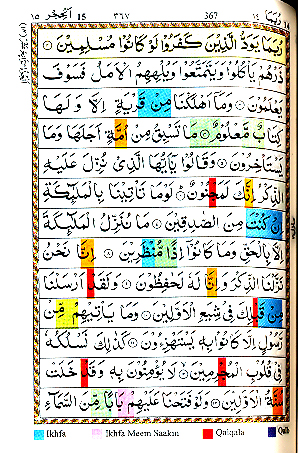 ١٥ الحجر 15 ٣٦٧ 367 ربما ١٤
رُبَمَا يَوَدُّ الَّذِيْنَ كَفَرُوْا لَوْ كَانُوْا مُسْلِمِيْنَ
ذَرْهُمْ يَاْكُلُوْا وَيَتَمَتَّعُوْا وَيُلْهِهِمُ الْاَمَلُ فَسَوْفَ
يَعْلَمُوْنَ وَمَآ اَهْلَكْنَا مِنْ قَرْيَةٍ اِلَّا وَلَهَا
كِتَابٌ مَّعْلُوْمٌ مَا تَسْبِقُ مِنْ اُمَّةٍ اَجَلَهَا وَمَا
يَسْتَاْخِرُوْنَ وَقَالُوْا يٰٓاَيُّهَا الَّذِيْ نُزِّلَ عَلَيْهِ
الذِّكْرُ اِنَّكَ لَمَجْنُوْنٌ لَوْ مَا تَاْتِيْنَا بِالْمَلٰٓئِكَةِ
اِنْ كُنْتَ مِنَ الصّٰدِقِيْنَ مَا نُنَزِّلُ الْمَلٰٓئِكَةَ
اِلَّا بِالْحَقِّ وَمَا كَانُوْٓا اِذًا مُّنْظَرِيْنَ اِنَّا نَحْنُ
نَزَّلْنَا الذِّكْرَ وَاِنَّا لَهٗ لَحٰفِظُوْنَ وَلَقَدْ اَرْسَلْنَا
مِنْ قَبْلِكَ فِيْ شِيَعِ الْاَوَّلِيْنَ وَمَا يَاْتِيْهِمْ مِّنْ
رَّسُوْلٍ اِلَّا كَانُوْا بِهٖ يَسْتَهْزِءُوْنَ كَذٰلِكَ نَسْلُكُهٗ
فِيْ قُلُوْبِ الْمُجْرِمِيْنَ لَا يُؤْمِنُوْنَ بِهٖ وَقَدْ خَلَتْ
سُنَّةُ الْاَوَّلِيْنَ وَلَوْ فَتَحْنَا عَلَيْهِمْ بَابًا مِّنَ السَّمَآءِ
Ikhfa Ikhfa Meem Saakin Qalqala